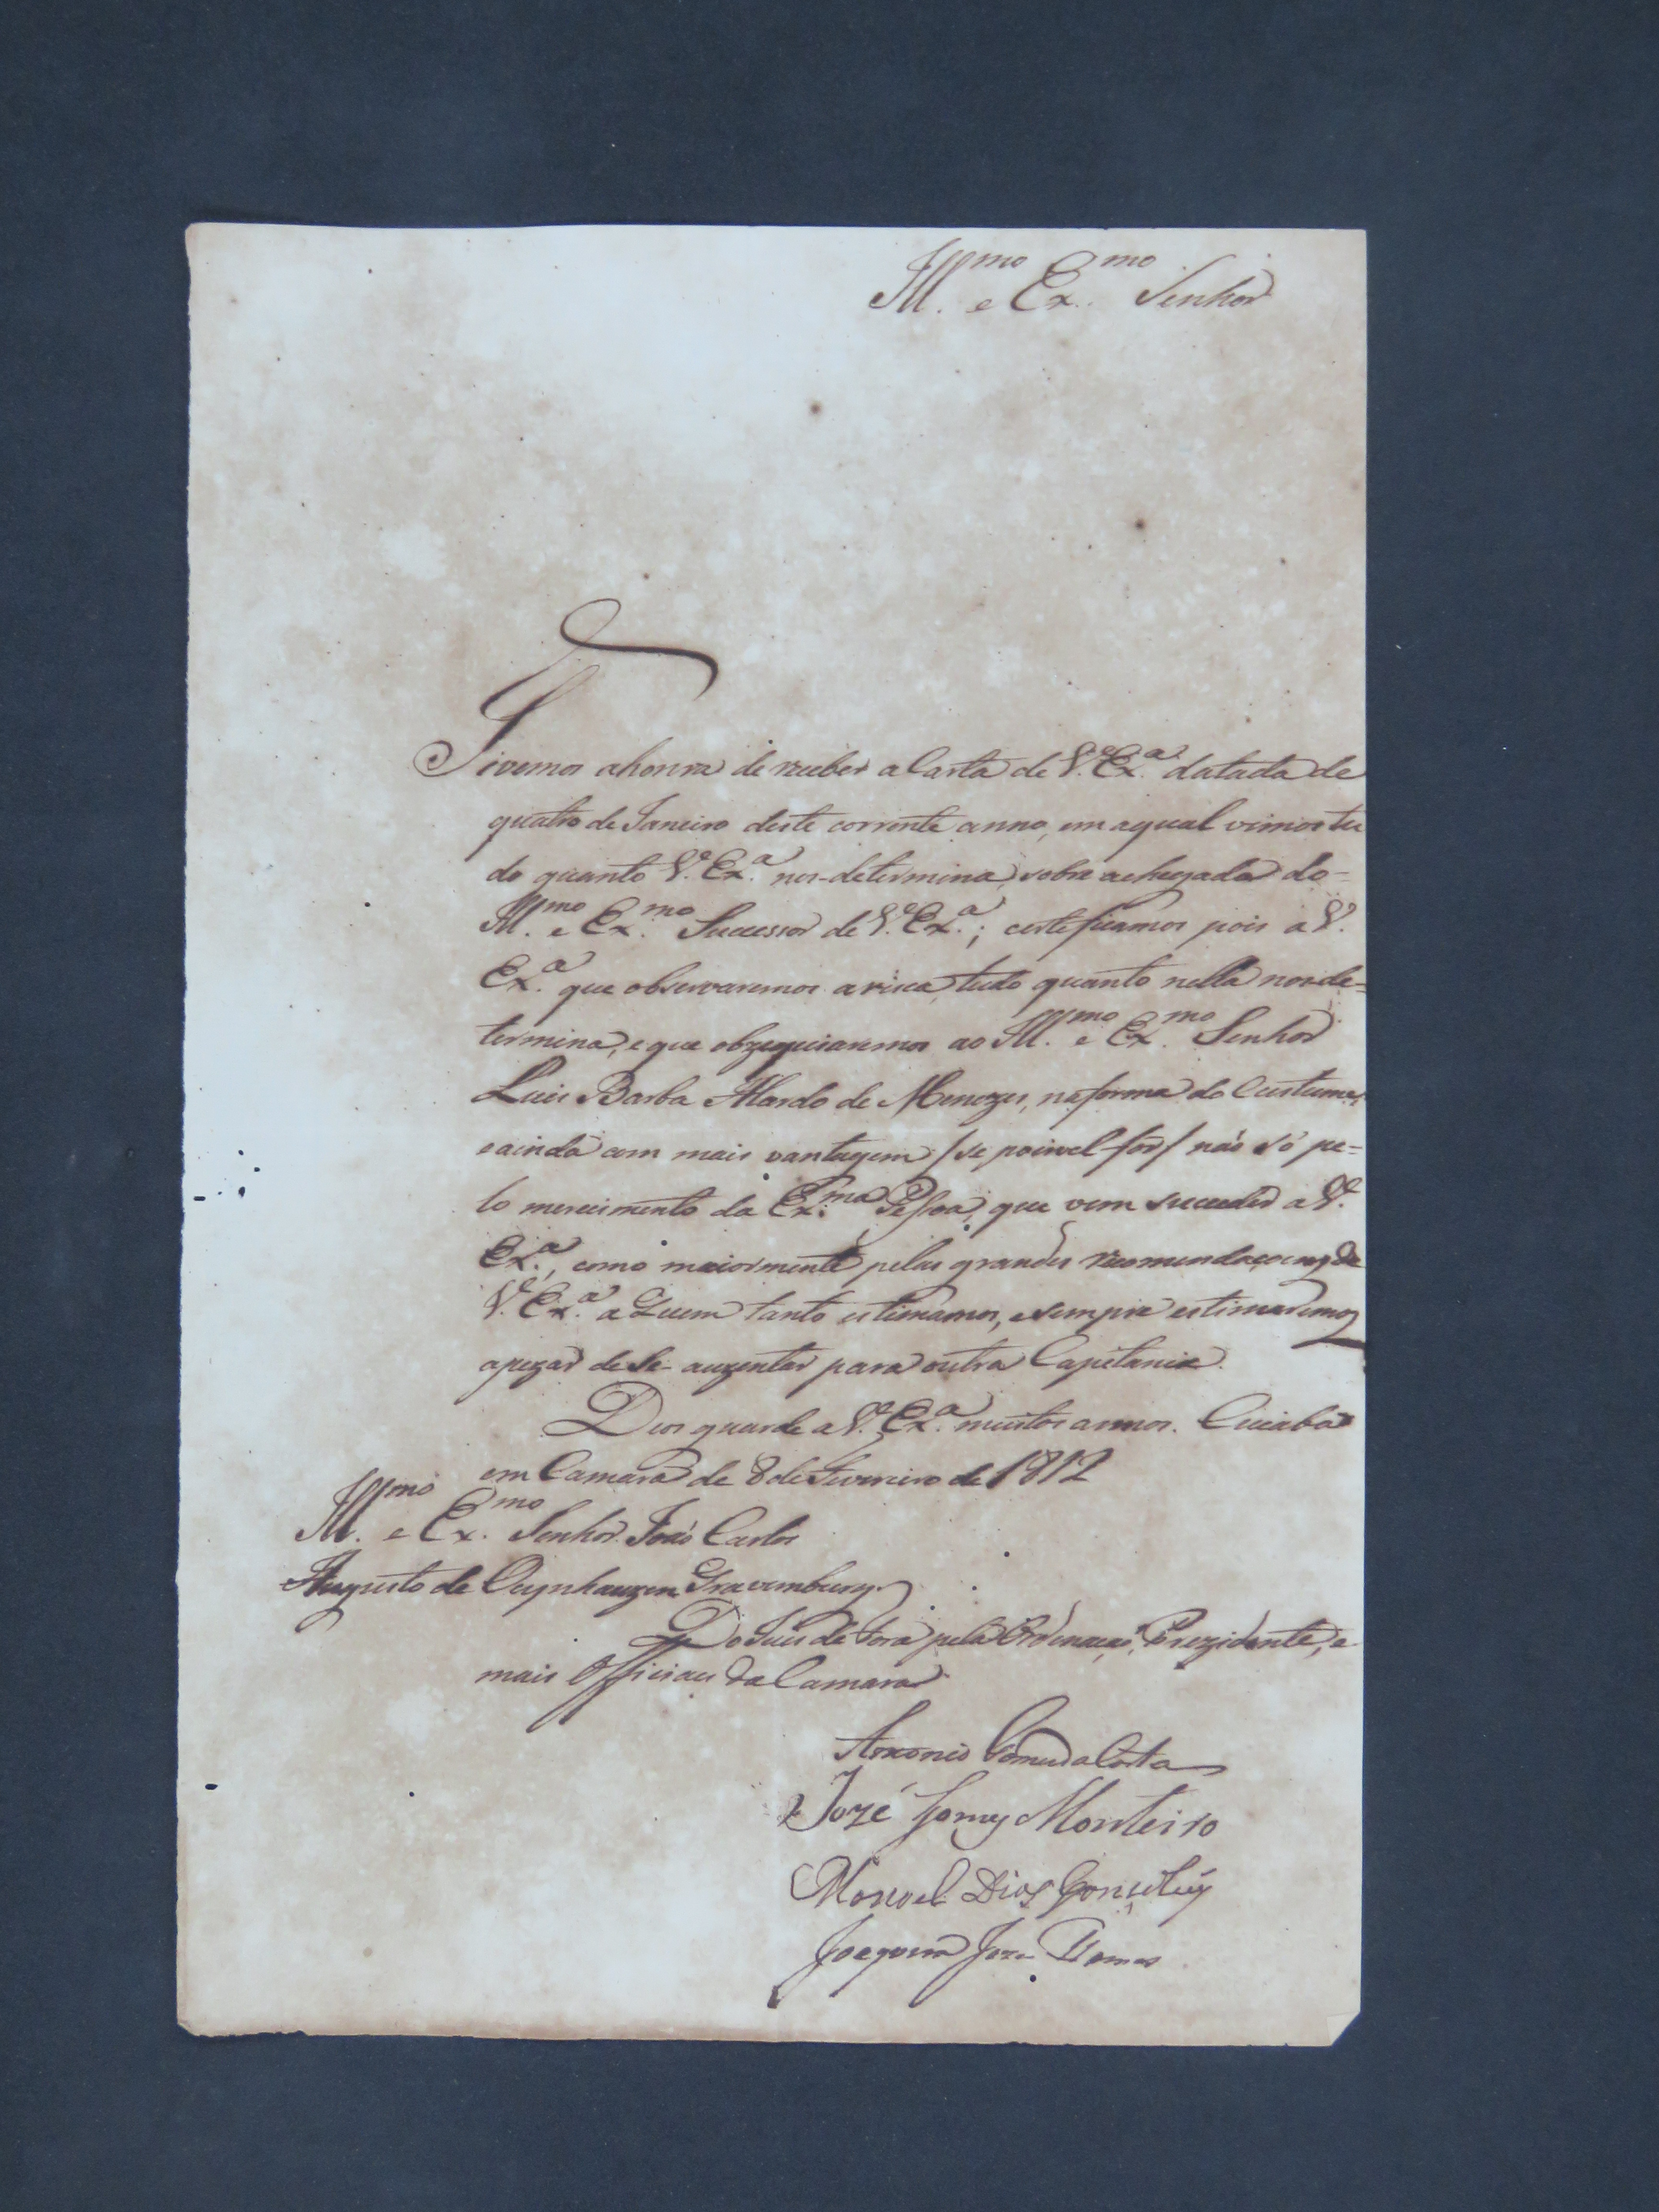 Ill.mo e Ex.mo Senhor
Tivemos ahonra de receber a Carta de V. Ex.a datada de
quatro de Janeiro deste corrente anno, em aqual vimos tu
do quanto V. Ex.a nos-determina, sobre achegada do=
Ill.mo e Ex.mo Successor de V. Ex.a; certeficamos pois a V.
Ex.a que observaremos arisca, tudo quanto nella nos de=
termina, e que obzequiaremos ao Ill.mo e Ex.mo Senhor
Luis Barba Alardo de Menezes, na forma do Custume,
eainda com mais vantagem /se poivel for/ não só pe=
lo merecimento da Ex.ma Pessoa, que vem suceder a V.
Ex.a, como maiormente pelas grandes recomendaçoens de
V. Ex.a a Quem tanto estimamos, esempre estimaremos
apezar de Se-auzentar para outra Capitania.
Deos guarde a V. Ex.a muitos annos. Cuiabá
em Camara de 8 de Fevereiro de 1812
Ill.mo e Ex.mo Senhor João Carlos
Augusto de Oeynhauzen Gravemburg
Do Juis de Fora pela Ordenação, Prezidente, e
mais Officiaes da Camara
Antonio Gomes da Costa
José Gomes Monteiro
Manoel Dias
Joaquim Jose